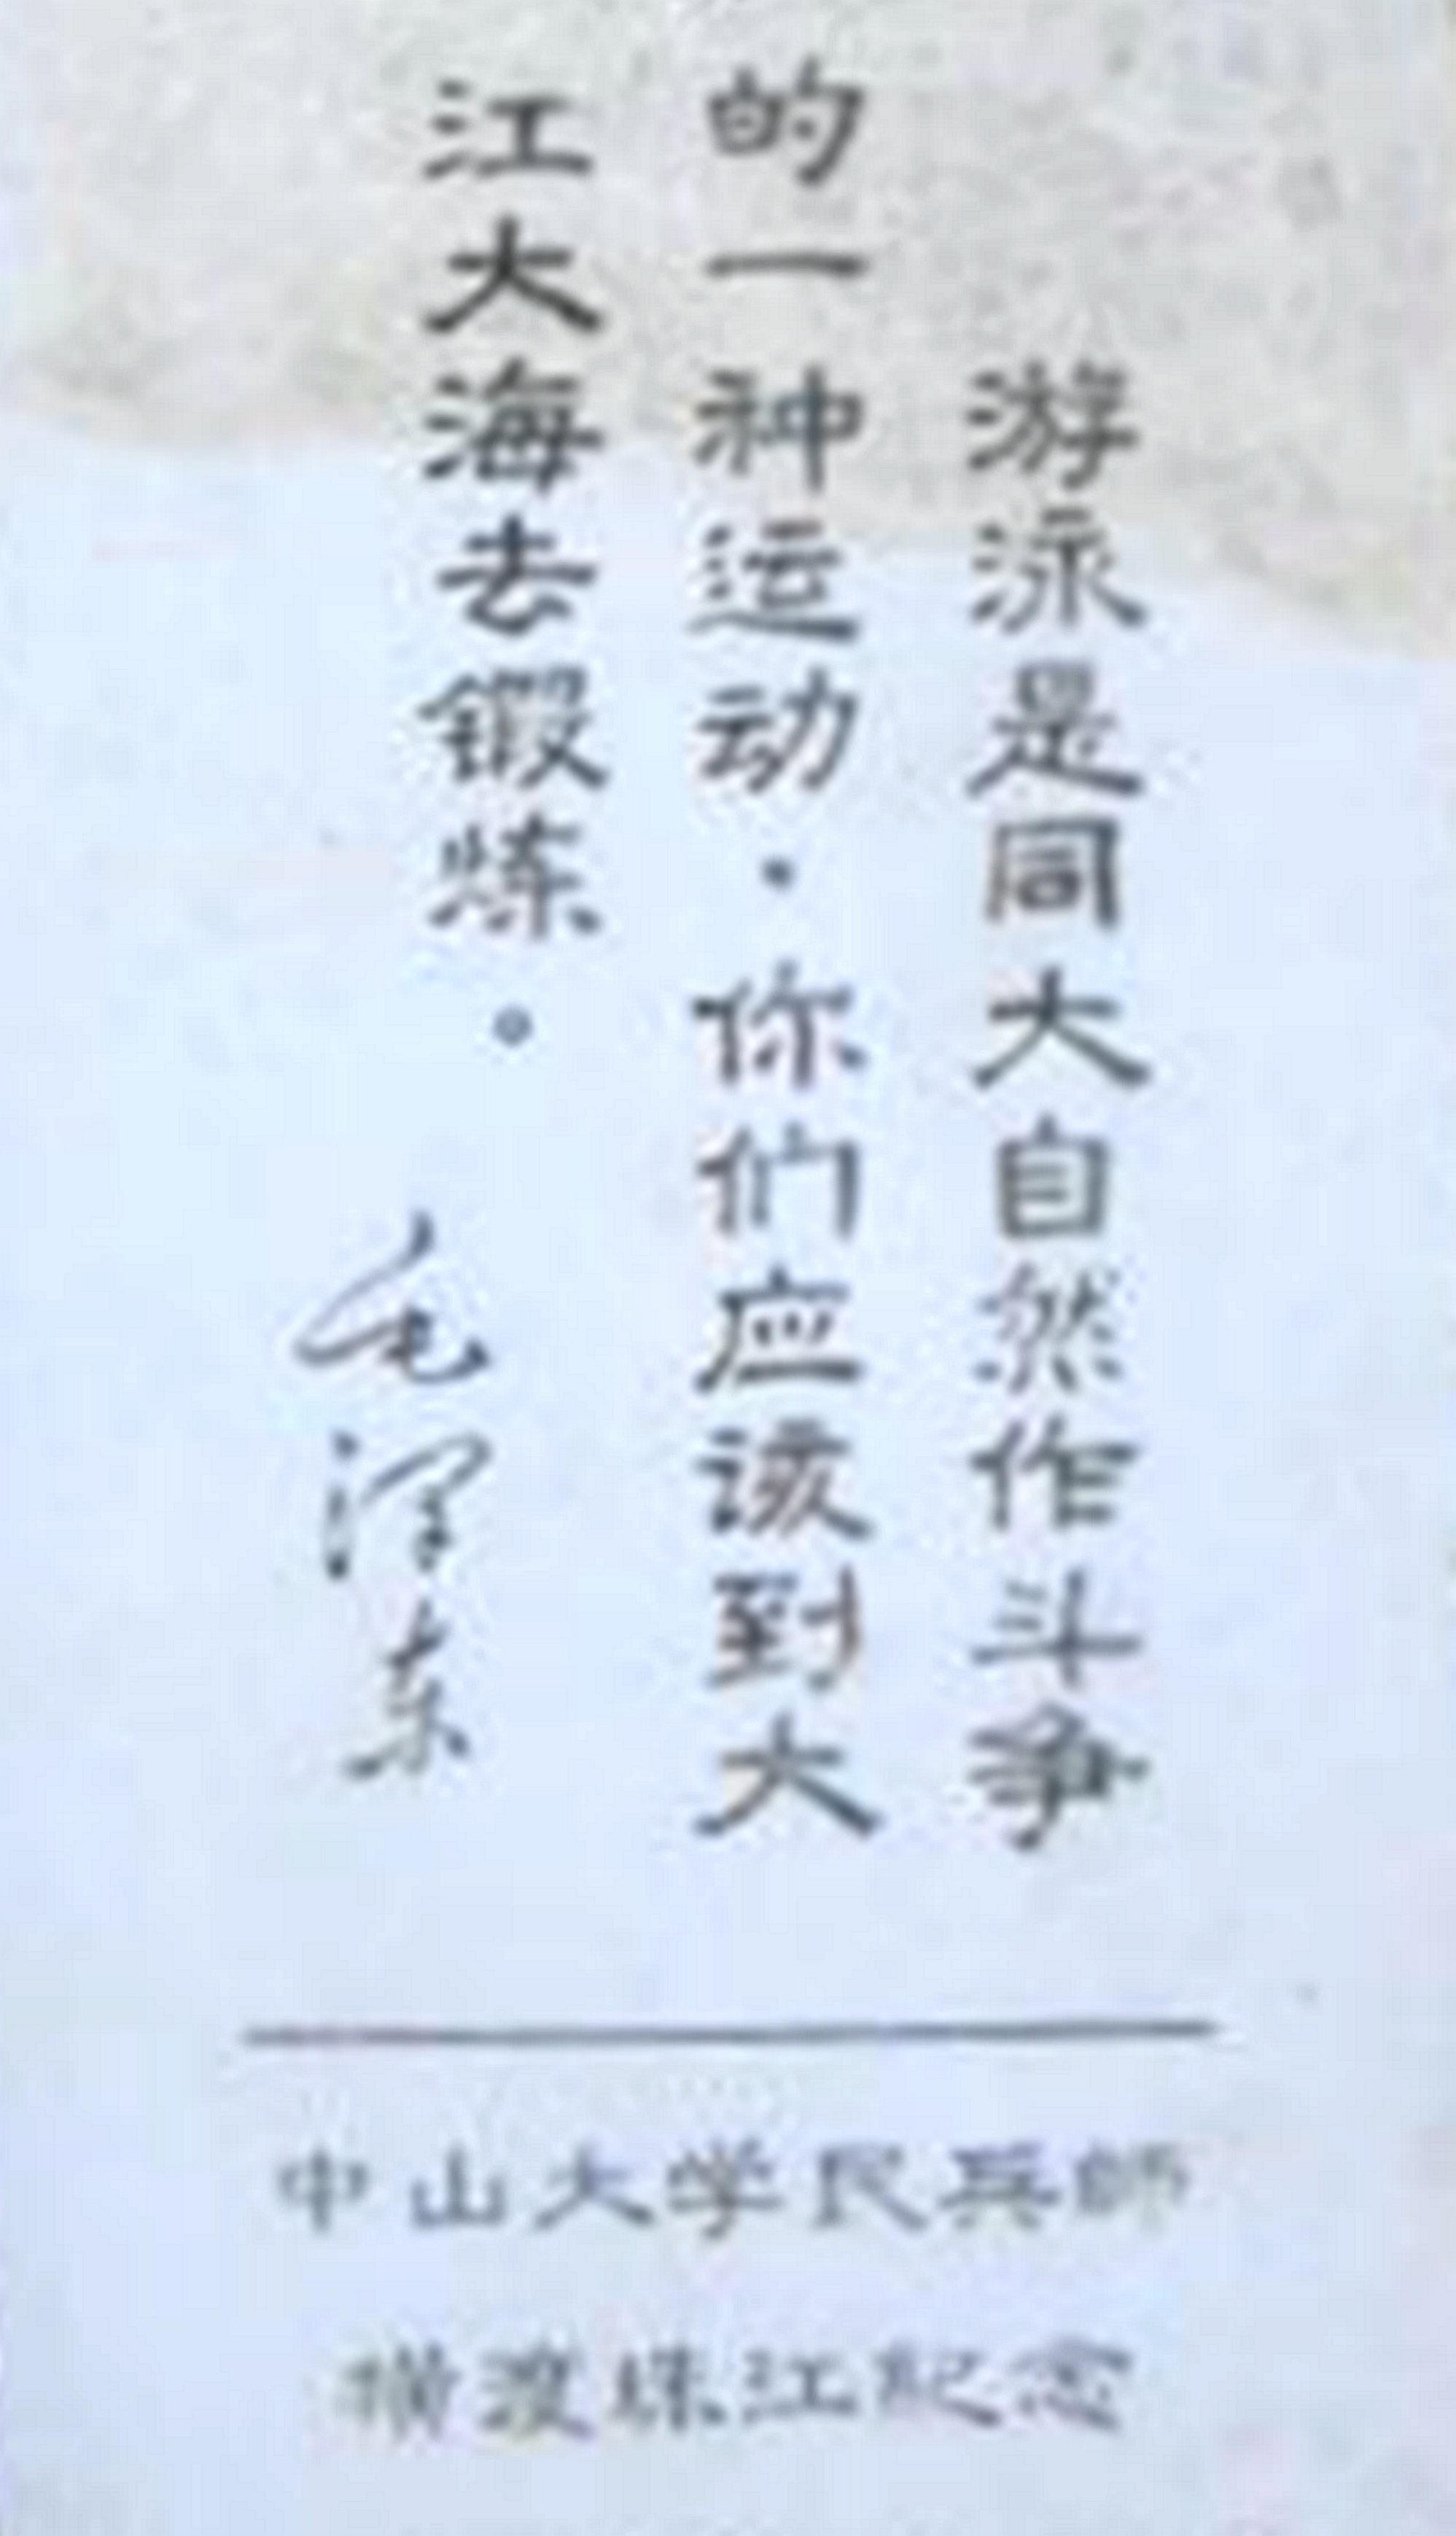 游泳是同大自然作斗争
的一种运动．你们应该到大
江大海去锻炼。
毛泽东
中山大学民兵師
横渡珠江紀念